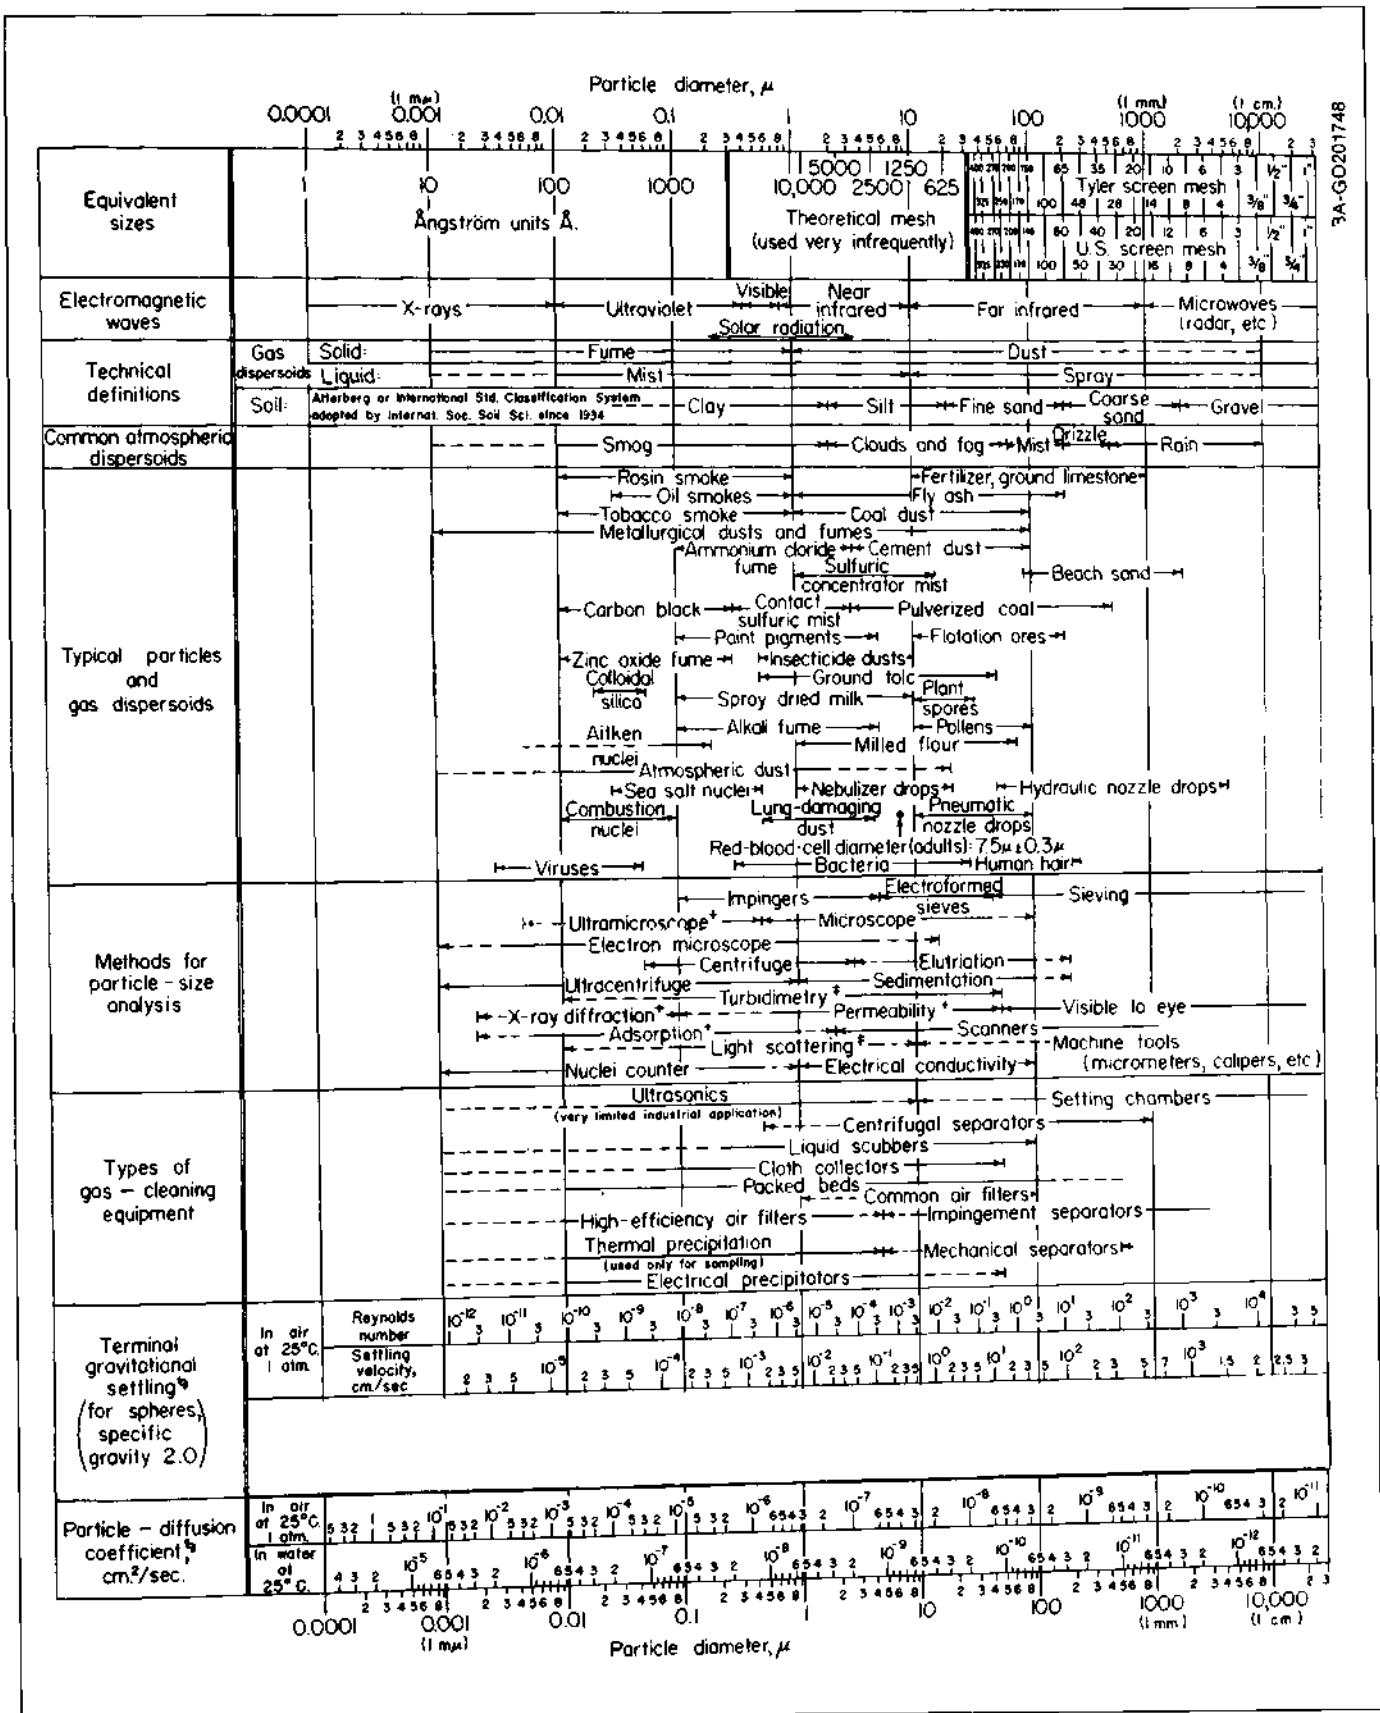 Particle diameter, μ
(1 mμ) (1 mm.) (1 cm.)
0.0001 0.001 0.01 0.1 1 10 100 1000 10,000
2 3 4 5 6 8 2 3 4 5 6 8 2 3 4 5 6 8 2 3 4 5 6 8 2 3 4 5 6 8 2 3 4 5 6 8 2 3 4 5 6 8 2 3
3A-GO201748
Equivalent
sizes
1 10 100 1000
Ångström units Å.
5000 1250
10,000 2500 625
Theoretical mesh
(used very infrequently)
65 35 20 10 6 3 1/2" 1"
Tyler screen mesh
100 48 28 14 8 4 3/8" 3/4"
60 40 20 12 6 3 1/2" 1"
U.S. screen mesh
100 50 30 16 8 4 3/8" 3/4"
Electromagnetic
waves
X-rays
Ultraviolet
Visible
Near
infrared
Far infrared
Microwaves
(radar, etc)
Solar radiation
Technical
definitions
Gas
dispersoids
Solid: Fume Dust
Liquid: Mist Spray
Soil:
Atterberg or International Std. Classification System
adopted by Internat. Soc. Soil Sci. since 1934
Clay Silt Fine sand
Coarse
sand
Gravel
Common atmospheric
dispersoids
Smog Clouds and fog Mist
Drizzle
Rain
Typical particles
and
gas dispersoids
Rosin smoke Fertilizer, ground limestone
Oil smokes Fly ash
Tobacco smoke Coal dust
Metallurgical dusts and fumes
Ammonium cloride
fume
Cement dust
Sulfuric
concentrator mist
Beach sand
Carbon black
Contact
sulfuric mist
Pulverized coal
Paint pigments Flotation ores
Zinc oxide fume Insecticide dusts
Colloidal
silica
Ground talc
Spray dried milk
Plant
spores
Alkali fume Pollens
Aitken
nuclei
Milled flour
Atmospheric dust
Sea salt nuclei Nebulizer drops Hydraulic nozzle drops
Combustion
nuclei
Lung-damaging
dust
Pneumatic
nozzle drops
Red-blood-cell diameter (adults): 7.5μ ± 0.3μ
Viruses Bacteria Human hair
Methods for
particle - size
analysis
Impingers
Electroformed
sieves
Sieving
Ultramicroscope+ Microscope
Electron microscope
Centrifuge Elutriation
Ultracentrifuge Sedimentation
Turbidimetry‡
X-ray diffraction+ Permeability+ Visible to eye
Adsorption+ Scanners
Light scattering‡ Machine tools
(micrometers, calipers, etc)
Nuclei counter Electrical conductivity
Types of
gas - cleaning
equipment
Ultrasonics
(very limited industrial application)
Setting chambers
Centrifugal separators
Liquid scubbers
Cloth collectors
Packed beds
Common air filters
High-efficiency air filters Impingement separators
Thermal precipitation
(used only for sampling)
Mechanical separators
Electrical precipitators
Terminal
gravitational
settling
(for spheres,
specific
gravity 2.0)
In air
at 25°C.
1 atm.
Reynolds
number
10-12 10-11 10-10 10-9 10-8 10-7 10-6 10-5 10-4 10-3 10-2 10-1 100 101 102 103 104
Settling
velocity,
cm./sec
10-5 10-4 10-3 10-2 10-1 100 101 102 103
Particle - diffusion
coefficient,
cm.2/sec.
In air
at 25°C.
1 atm.
1 10-1 10-2 10-3 10-4 10-5 10-6 10-7 10-8 10-9 10-10 10-11
In water
at
25°C.
10-5 10-6 10-7 10-8 10-9 10-10 10-11 10-12
0.0001 0.001 0.01 0.1 1 10 100 1000 10,000
(1 mμ) (1 mm.) (1 cm.)
Particle diameter, μ